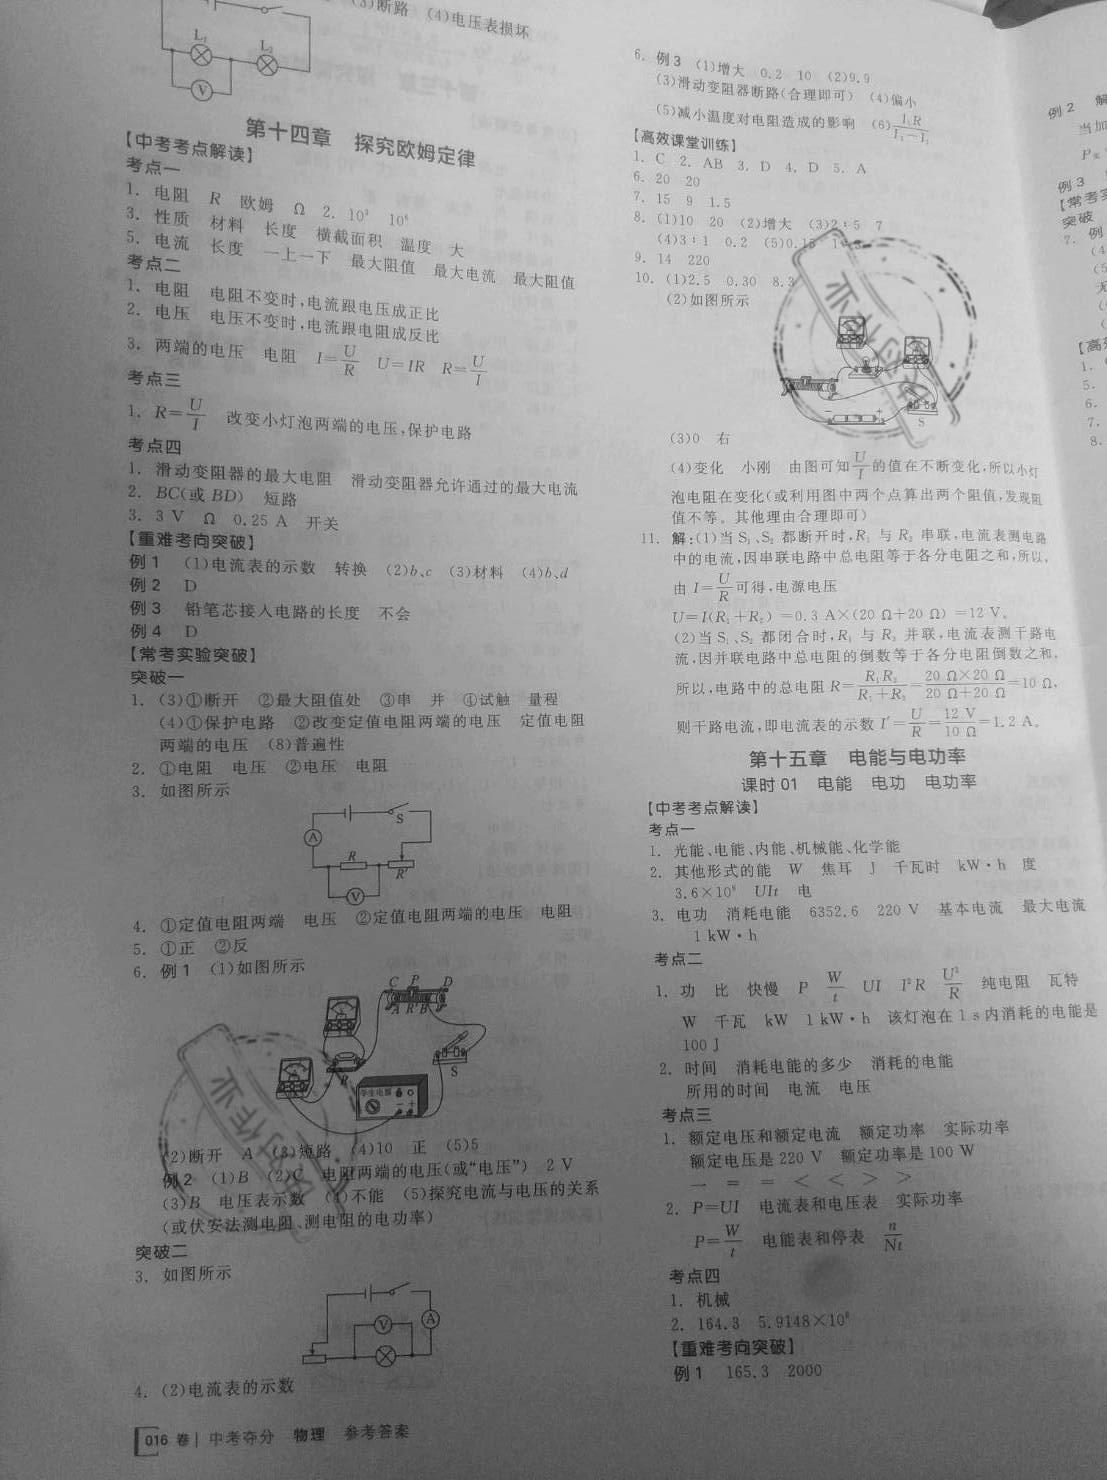 (3)断路 (4)电压表损坏
L₁
L₂
V
第十四章 探究欧姆定律
【中考考点解读】
考点一
1. 电阻 R 欧姆 Ω 2. 10³ 10⁶
3. 性质 材料 长度 横截面积 温度 大
5. 电流 长度 一上一下 最大阻值 最大电流 最大阻值
考点二
1. 电阻 电阻不变时,电流跟电压成正比
2. 电压 电压不变时,电流跟电阻成反比
3. 两端的电压 电阻 I=U/R U=IR R=U/I
考点三
1. R=U/I 改变小灯泡两端的电压,保护电路
考点四
1. 滑动变阻器的最大电阻 滑动变阻器允许通过的最大电流
2. BC(或 BD) 短路
3. 3 V Ω 0.25 A 开关
【重难考向突破】
例 1 (1)电流表的示数 转换 (2)b、c (3)材料 (4)b、d
例 2 D
例 3 铅笔芯接入电路的长度 不会
例 4 D
【常考实验突破】
突破一
1. (3)①断开 ②最大阻值处 ③串 并 ④试触 量程
(4)①保护电路 ②改变定值电阻两端的电压 定值电阻
两端的电压 (8)普遍性
2. ①电阻 电压 ②电压 电阻
3. 如图所示
S
A
R
R'
V
4. ①定值电阻两端 电压 ②定值电阻两端的电压 电阻
5. ①正 ②反
6. 例 1 (1)如图所示
C P D
A R' B
R
S
学生电源
(2)断开 A (3)短路 (4)10 正 (5)5
例 2 (1)B (2)C 电阻两端的电压(或“电压”) 2 V
(3)B 电压表示数 (4)不能 (5)探究电流与电压的关系
(或伏安法测电阻、测电阻的电功率)
突破二
3. 如图所示
V
A
4. (2)电流表的示数
016 卷 | 中考夺分 物理 参考答案
6. 例 3 (1)增大 0.2 10 (2)9.9
(3)滑动变阻器断路(合理即可) (4)偏小
(5)减小温度对电阻造成的影响 (6)I₁R/I₂-I₁
【高效课堂训练】
1. C 2. AB 3. D 4. D 5. A
6. 20 20
7. 15 9 1.5
8. (1)10 20 (2)增大 (3)2∶5 7
(4)3∶1 0.2 (5)0.15
9. 14 220
10. (1)2.5 0.30 8.3
(2)如图所示
S
(3)0 右
(4)变化 小刚 由图可知U/I的值在不断变化,所以小灯
泡电阻在变化(或利用图中两个点算出两个阻值,发现阻
值不等。其他理由合理即可)
11. 解:(1)当 S₁、S₂ 都断开时,R₁ 与 R₂ 串联,电流表测电路
中的电流,因串联电路中总电阻等于各分电阻之和,所以,
由 I=U/R可得,电源电压
U=I(R₁+R₂)=0.3 A×(20 Ω+20 Ω)=12 V。
(2)当 S₁、S₂ 都闭合时,R₁ 与 R₃ 并联,电流表测干路电
流,因并联电路中总电阻的倒数等于各分电阻倒数之和,
所以,电路中的总电阻 R=R₁R₃/R₁+R₃=20 Ω×20 Ω/20 Ω+20 Ω=10 Ω,
则干路电流,即电流表的示数 I'=U/R=12 V/10 Ω=1.2 A。
第十五章 电能与电功率
课时 01 电能 电功 电功率
【中考考点解读】
考点一
1. 光能、电能、内能、机械能、化学能
2. 其他形式的能 W 焦耳 J 千瓦时 kW·h 度
3.6×10⁶ UIt 电
3. 电功 消耗电能 6352.6 220 V 基本电流 最大电流
1 kW·h
考点二
1. 功 比 快慢 P W/t UI I²R U²/R 纯电阻 瓦特
W 千瓦 kW 1 kW·h 该灯泡在 1 s 内消耗的电能是
100 J
2. 时间 消耗电能的多少 消耗的电能
所用的时间 电流 电压
考点三
1. 额定电压和额定电流 额定功率 实际功率
额定电压是 220 V 额定功率是 100 W
一 = = < < > >
2. P=UI 电流表和电压表 实际功率
P=W/t 电能表和停表 n/Nt
考点四
1. 机械
2. 164.3 5.9148×10⁸
【重难考向突破】
例 1 165.3 2000
例 2 解
当加
例 3
【常考实
突破
7. 例
【高效
1.
5.
6.
7.
8.